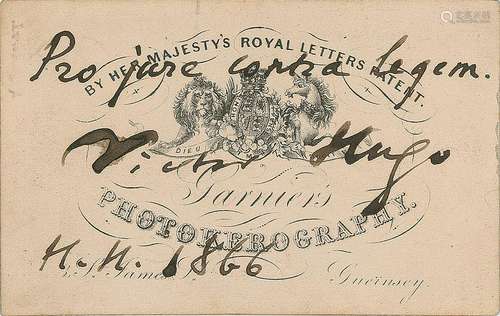 Pro jure contra legem.
BY HER MAJESTY'S ROYAL LETTERS PATENT.
DIEU
Victor Hugo
Garnier's
PHOTOKEROGRAPHY.
H.-H. 1866
St. James Guernsey.